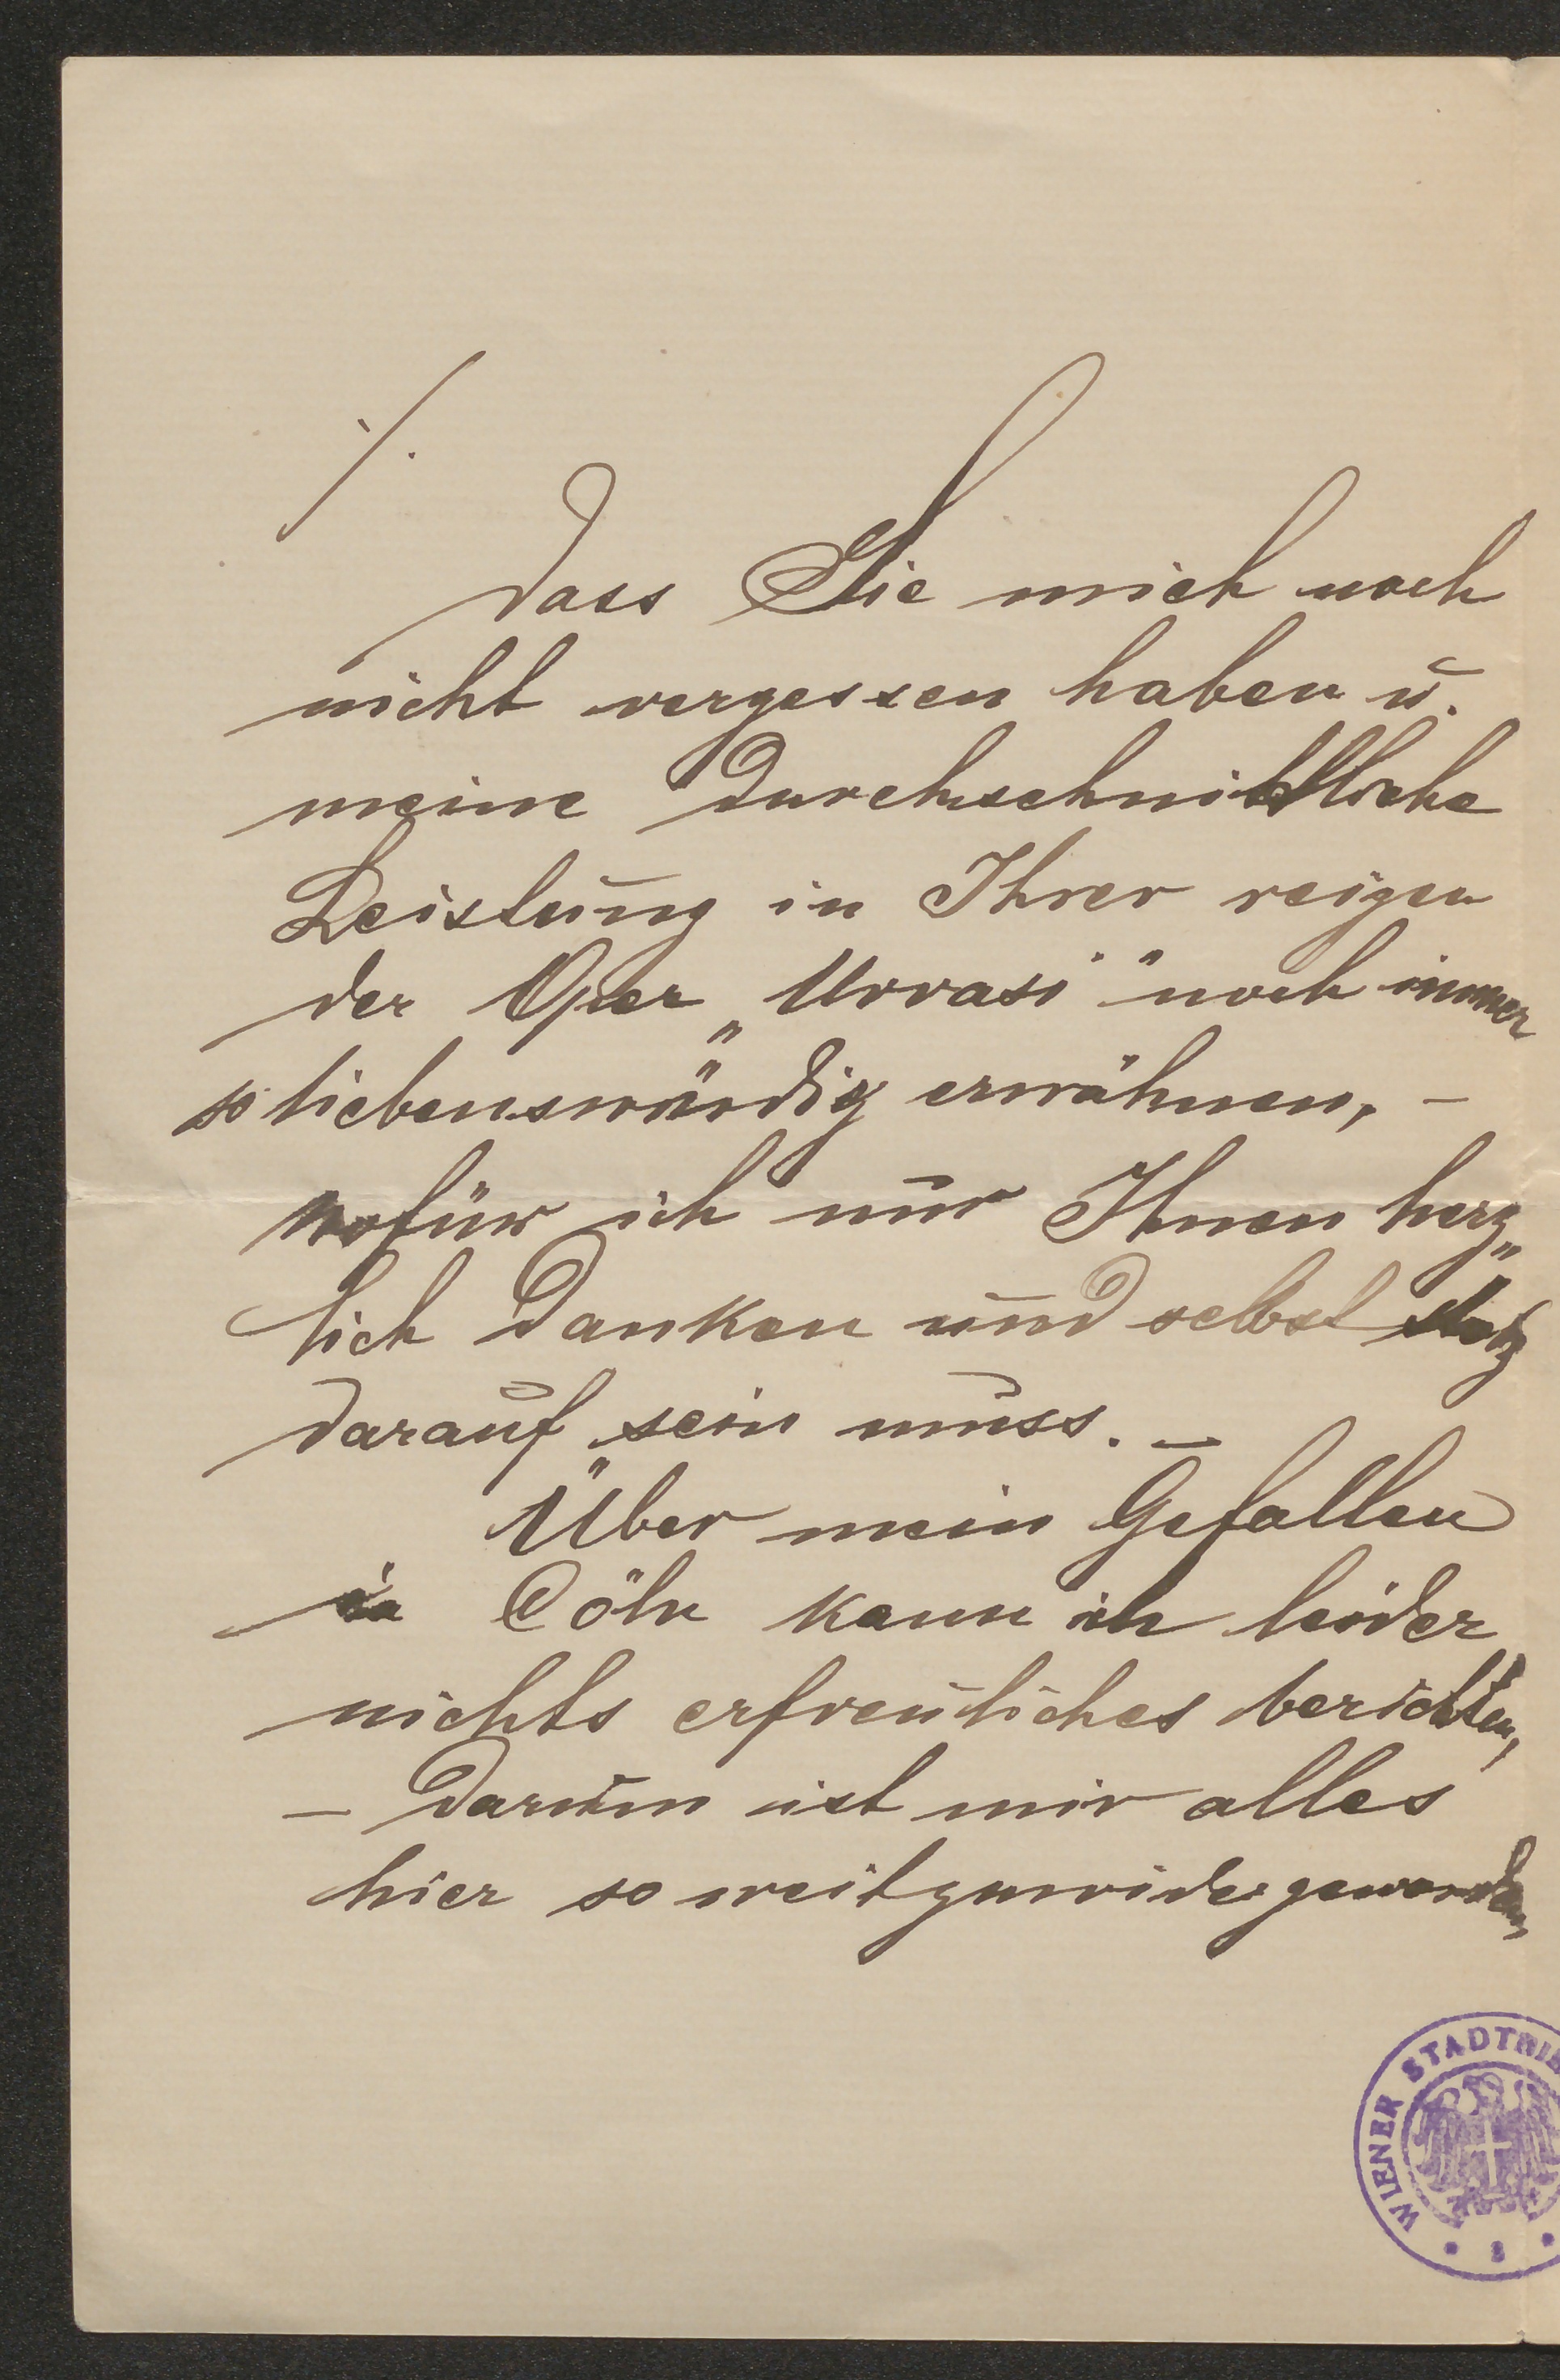 ./.
dass Sie mich noch
nicht vergessen haben u.
meine durchschnittliche
Leistung in Ihrer reigen
der Oper „Urvasi" noch immer
so liebenswürdig erwähnen, –
wofür ich nur Ihnen herz„
lich danken und selbst stolz
darauf sein muss. –
Über mein Gefallen
in Cöln kann ich leider
nichts erfreuliches berichten,
– darum ist mir alles
hier so weit zuwider geworden,
WIENER STADTBIB